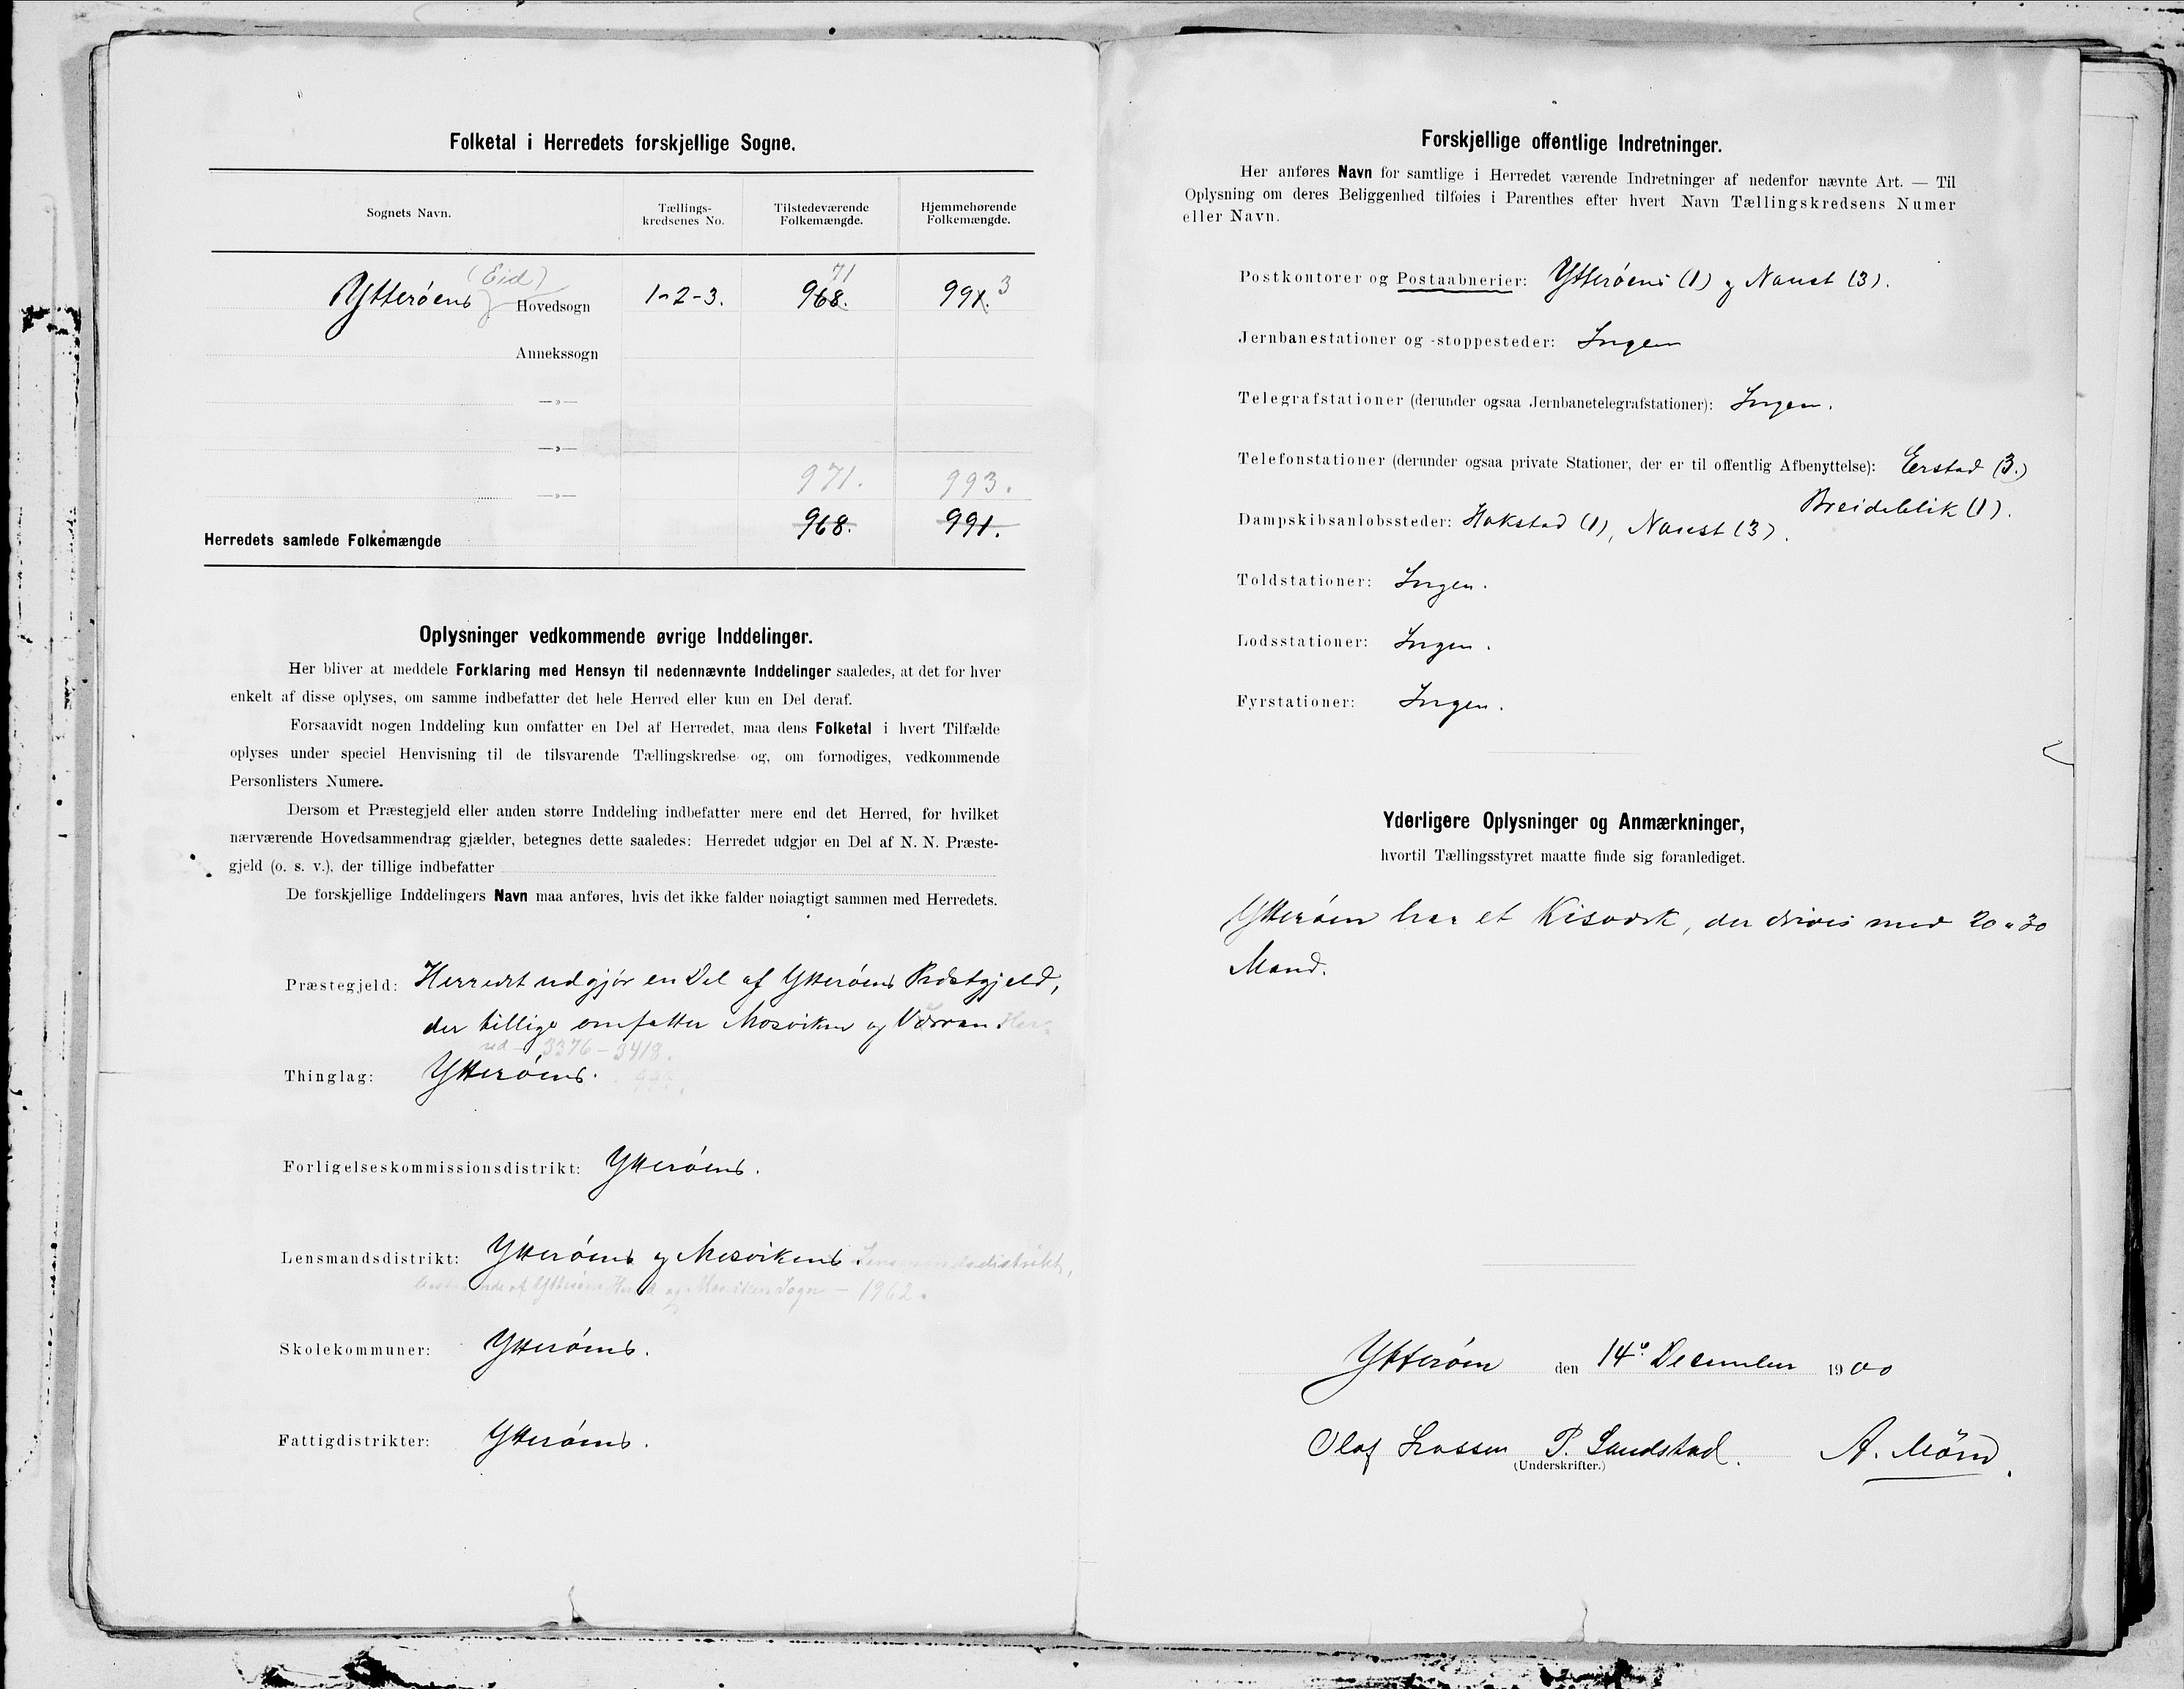 Folketal i Herredets forskjellige Sogne.
Sognets Navn.
Tællings-
kredsenes No.
Tilstedeværende
Folkemængde.
Hjemmehørende
Folkemængde.
(Eid)
71
Ytterøens Hovedsogn 1-2-3. 968. 991. 3
Annekssogn
—»—
—»—
971. 993.
—»—
Herredets samlede Folkemængde 968. 991.
Oplysninger vedkommende øvrige Inddelinger.
Her bliver at meddele Forklaring med Hensyn til nedennævnte Inddelinger saaledes, at det for hver
enkelt af disse oplyses, om samme indbefatter det hele Herred eller kun en Del deraf.
Forsaavidt nogen Inddeling kun omfatter en Del af Herredet, maa dens Folketal i hvert Tilfælde
oplyses under speciel Henvisning til de tilsvarende Tællingskredse og, om fornødiges, vedkommende
Personlisters Numere.
Dersom et Præstegjeld eller anden større Inddeling indbefatter mere end det Herred, for hvilket
nærværende Hovedsammendrag gjælder, betegnes dette saaledes: Herredet udgjør en Del af N. N. Præste-
gjeld (o. s. v.), der tillige indbefatter
De forskjellige Inddelingers Navn maa anføres, hvis det ikke falder nøiagtigt sammen med Herredets.
Præstegjeld: Herredet udgjør en Del af Ytterøens Præstgjeld,
der tillige omfatter Mosviken og Værran Her-
red - 3376 - 3418.
Thinglag: Ytterøens.
Forligelseskommissionsdistrikt: Ytterøens.
Lensmandsdistrikt: Ytterøens og Mosvikens Lensmandsdistrikt,
bestaaende af Ytterøen Herred og Mosviken Sogn - 1962.
Skolekommuner: Ytterøens.
Fattigdistrikter: Ytterøens.
Forskjellige offentlige Indretninger.
Her anføres Navn for samtlige i Herredet værende Indretninger af nedenfor nævnte Art. — Til
Oplysning om deres Beliggenhed tilføies i Parenthes efter hvert Navn Tællingskredsens Numer
eller Navn.
Postkontorer og Postaabnerier: Ytterøens (1) og Naust (3).
Jernbanestationer og -stoppesteder: Ingen
Telegrafstationer (derunder ogsaa Jernbanetelegrafstationer): Ingen.
Telefonstationer (derunder ogsaa private Stationer, der er til offentlig Afbenyttelse): Erstad (3.)
Breideblik (1).
Dampskibsanløbssteder: Hokstad (1), Naust (3).
Toldstationer: Ingen.
Lodsstationer: Ingen.
Fyrstationer: Ingen.
Yderligere Oplysninger og Anmærkninger,
hvortil Tællingsstyret maatte finde sig foranlediget.
Ytterøen har et Kisværk, der drives med 20 a 30
Mand.
Ytterøen den 14de December 1900
Olaf P. Sandstad. A.
(Underskrifter.)